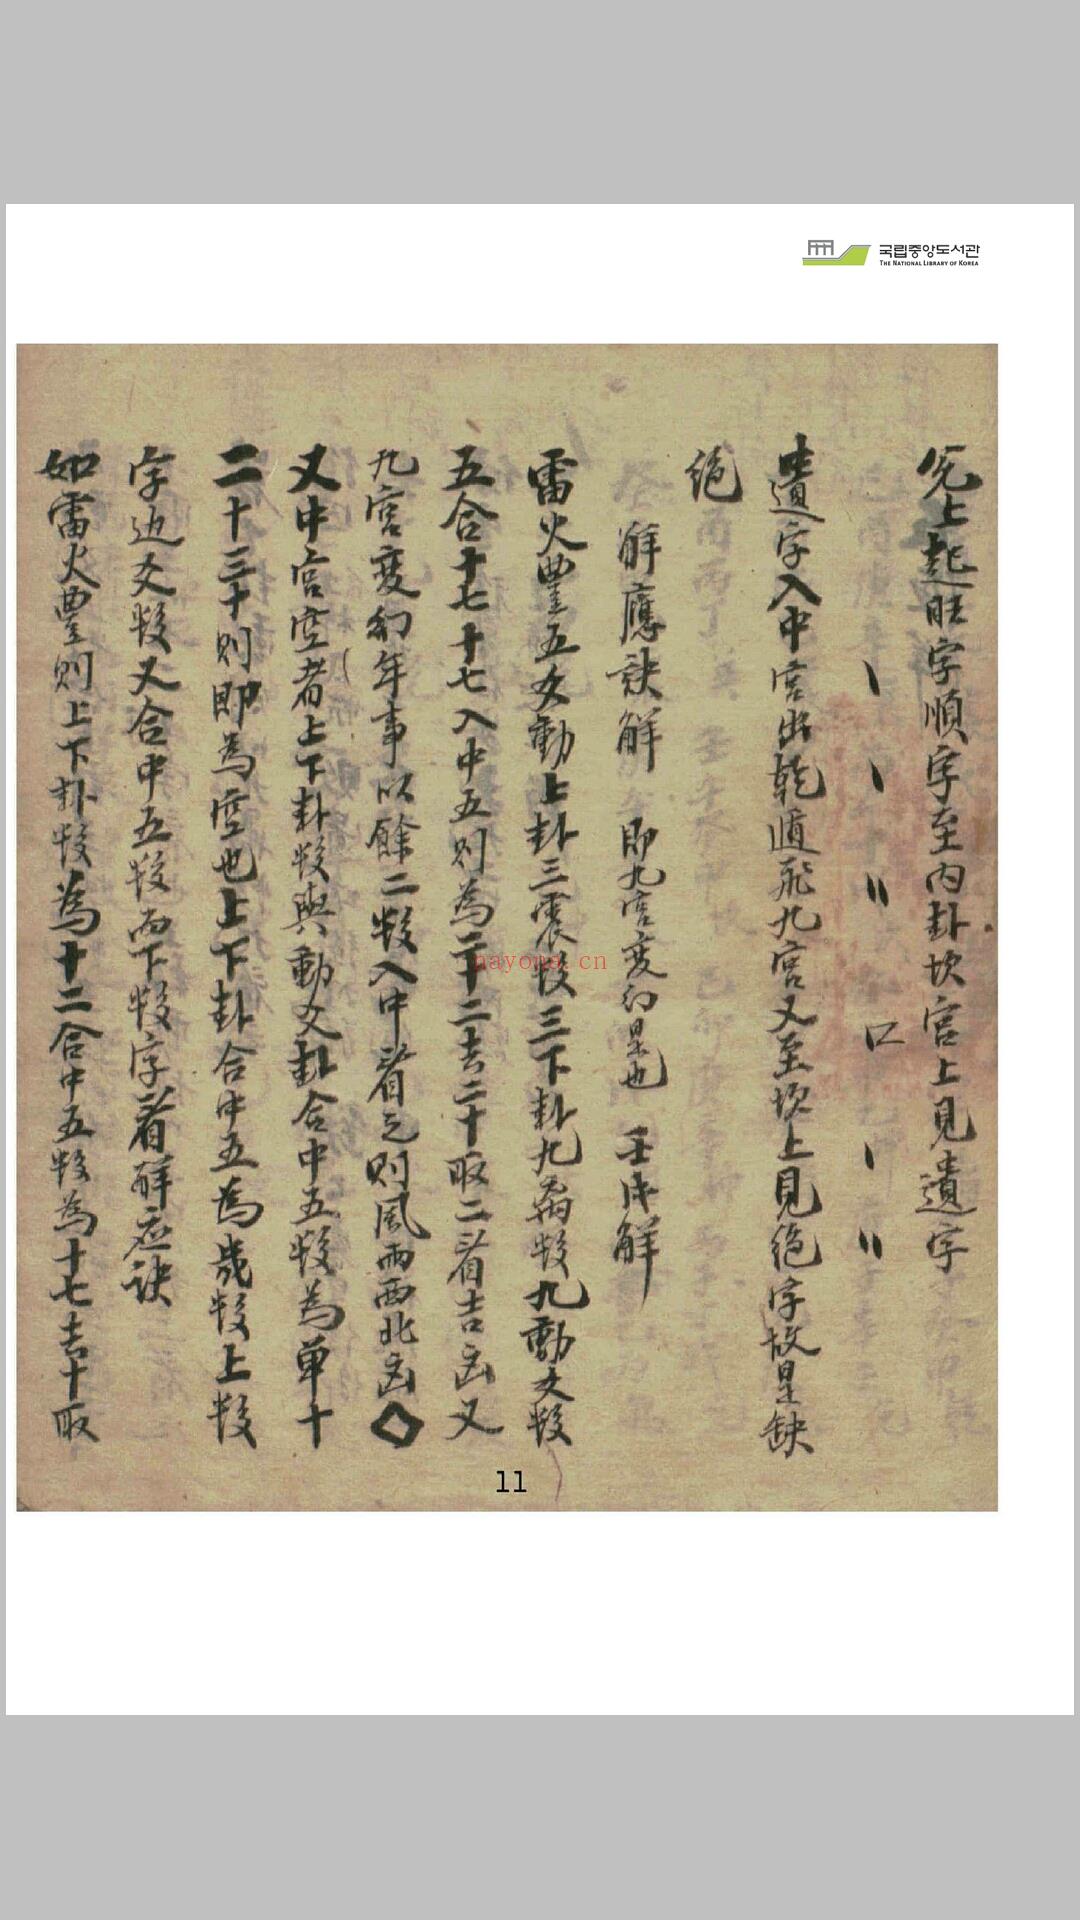 국립중앙도서관
THE NATIONAL LIBRARY OF KOREA
兌上起旺字順字至內卦坎宮上見遺字
遺字入中宮出乾遁飛九宮又至坎上見絶字故是缺
絶
解應訣解 即九宮変幻是也 壬戌解
雷火豊五爻動上卦三震数三下卦九离数九動爻数
五合十七十七入中五則為二十二去二十取二看吉凶又
九宮変幻年事以餘二数入中看之則風雨西北凶
又中宮空者上下卦数與動爻卦合中五数為单十
二十三十則即為空也上下卦合中五為成数上数
字边爻数又合中五数而下数字看解応訣
如雷火豊則上下卦数為十二合中五数為十七去十取
nayona.cn
11